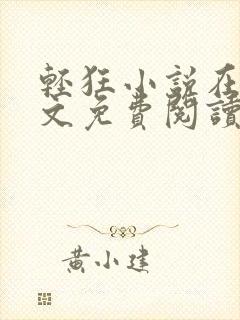 輕狂小說在
文免費閱讀
黃小建